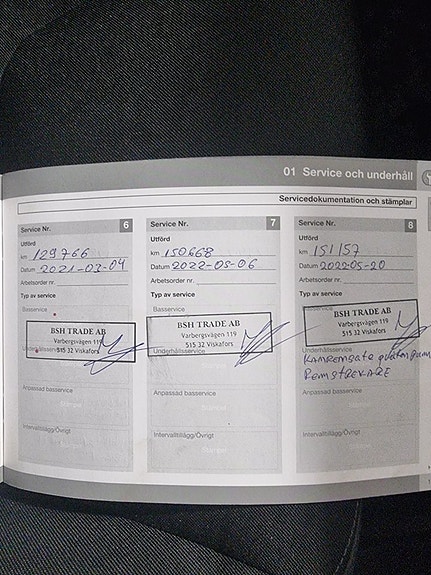 01 Service och underhåll
Servicedokumentation och stämplar
Service Nr. 6
Utförd
km 129766
Datum 2021-03-04
Arbetsorder nr.
Typ av service
Basservice
BSH TRADE AB
Varbergsvägen 119
515 32 Viskafors
Underhållsservice
Anpassad basservice
Intervalltillägg/Övrigt
Service Nr. 7
Utförd
km 150668
Datum 2022-05-06
Arbetsorder nr.
Typ av service
BSH TRADE AB
Varbergsvägen 119
515 32 Viskafors
Underhållsservice
Anpassad basservice
Intervalltillägg/Övrigt
Service Nr. 8
Utförd
km 151157
Datum 2022-05-20
Arbetsorder nr.
Typ av service
Basservice
BSH TRADE AB
Varbergsvägen 119
515 32 Viskafors
Underhållsservice
REMSTRECKARE
Anpassad basservice
Intervalltillägg/Övrigt